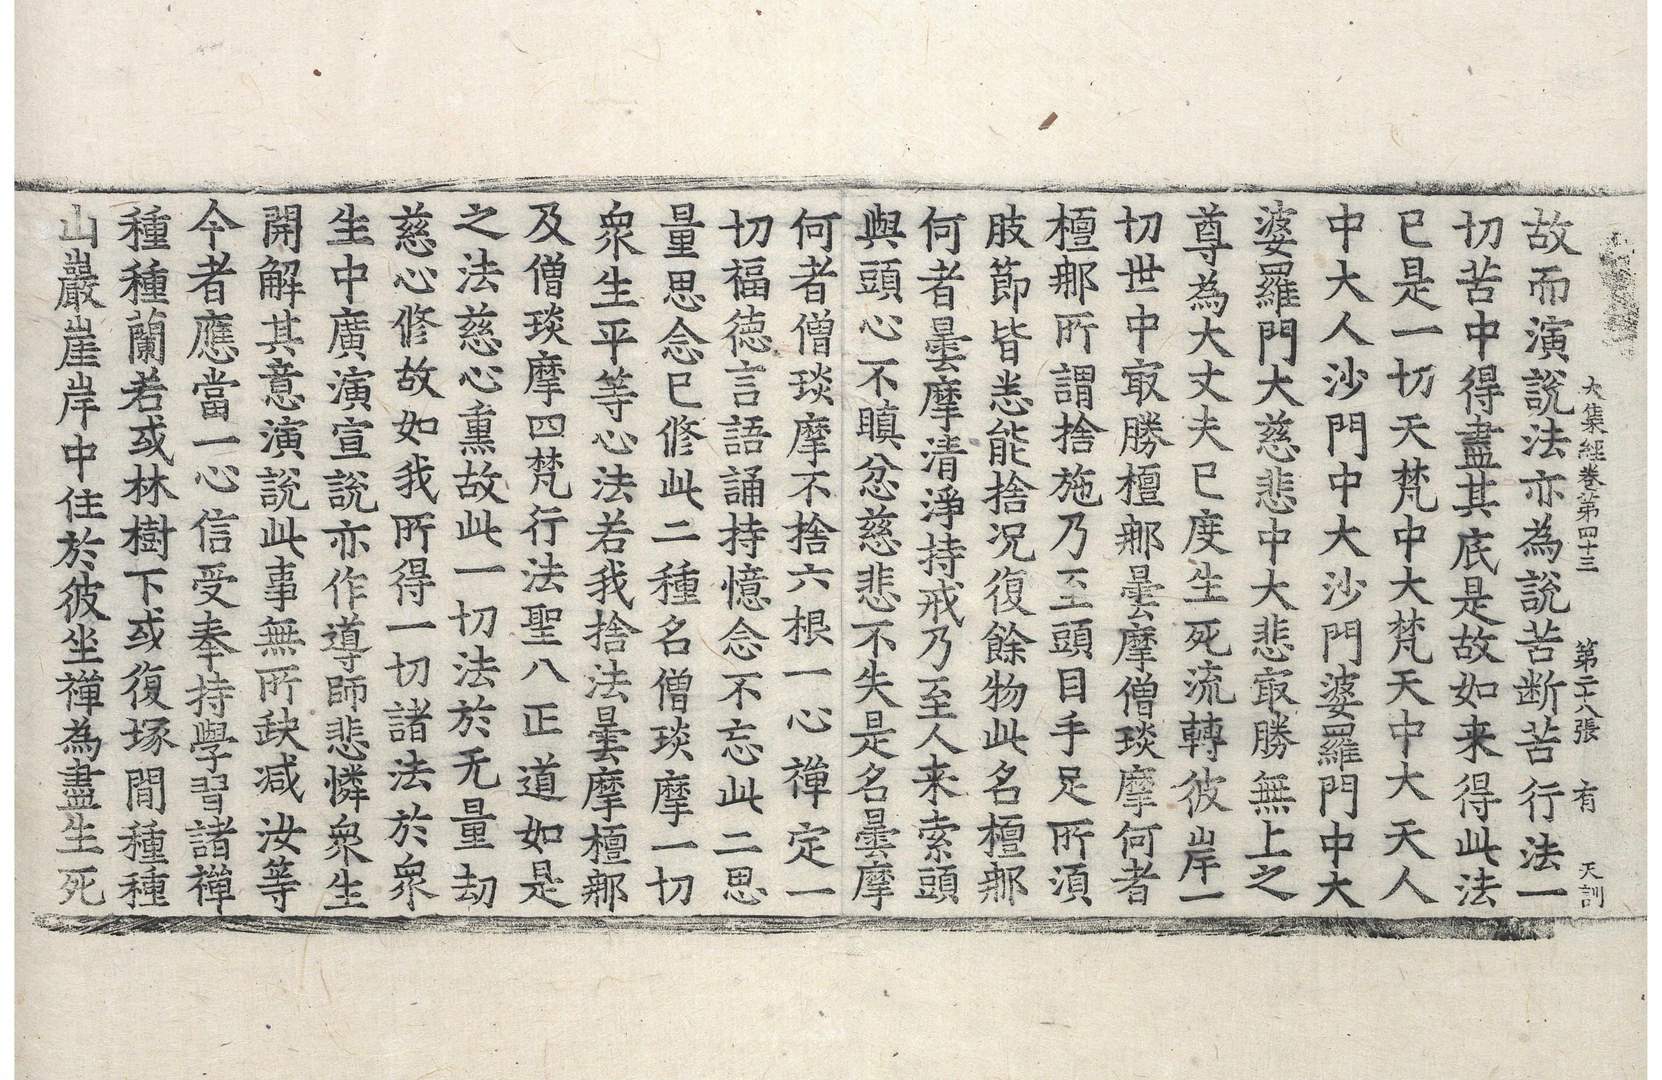 大集經卷第四十三 第二十八張 有 天訓
故而演說法亦為說苦断苦行法一
切苦中得盡其底是故如来得此法
已是一切天梵中大梵天中大天人
中大人沙門中大沙門婆羅門中大
婆羅門大慈悲中大悲㝡勝無上之
尊為大丈夫已度生死流轉彼岸一
切世中㝡勝檀那曇摩僧琰摩何者
檀那所謂捨施乃至頭目手足所湏
肢節皆悉能捨况復餘物此名檀那
何者曇摩清淨持戒乃至人来索頭
與頭心不瞋忿慈悲不失是名曇摩
何者僧琰摩不捨六根一心禪定一
切福徳言語誦持憶念不忘此二思
量思念已修此二種名僧琰摩一切
衆生平等心法若我捨法曇摩檀那
及僧琰摩四梵行法聖八正道如是
之法慈心熏故此一切法於无量劫
慈心修故如我所得一切諸法於衆
生中廣演宣說亦作導師悲憐衆生
開解其意演說此事無所缺减汝等
今者應當一心信受奉持學習諸禪
種種蘭若或林樹下或復塚間種種
山巖崖岸中住於彼坐禪為盡生死